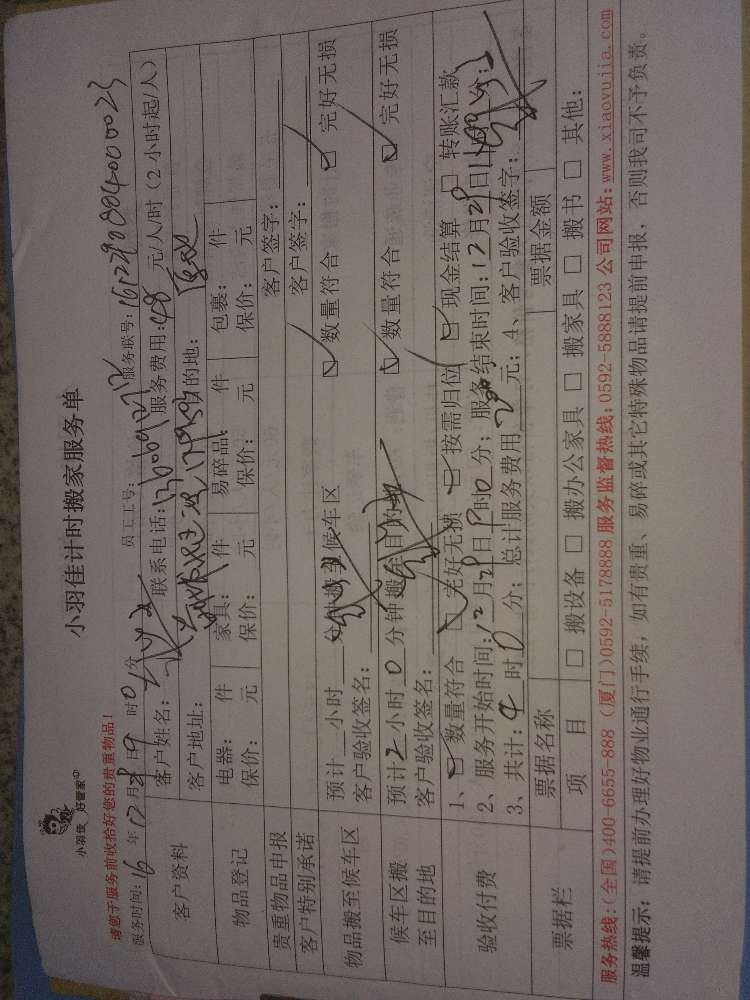 小羽佳计时搬家服务单
小羽佳 好管家
请您于服务前收拾好您的贵重物品!
服务时间: 16 年 12 月 29 日 9 时 0 分 员工工号: 服务联号: 161229080400023
客户资料 客户姓名: 联系电话: 服务费用: 48 元/人/时(2小时起/人)
客户地址: 目的地:
物品登记 电器: 件 家具: 件 易碎品: 件 包裹: 件
保价: 元 保价: 元 保价: 元 保价: 元
贵重物品申报 客户签字:
客户特别承诺 客户签字:
物品搬至候车区 预计 小时 分钟搬至候车区 ☑ 数量符合 ☑ 完好无损
客户验收签名:
候车区搬至目的地 预计 2 小时 0 分钟搬至目的地 ☑ 数量符合 ☑ 完好无损
客户验收签名:
验收付费 1、☑ 数量符合 ☑ 完好无损 ☑ 按需归位 ☑ 现金结算 □ 转账汇款
2、服务开始时间: 12 月 29 日 9 时 0 分; 服务结束时间: 12 月 29 日 时 分;
3、共计: 4 时 0 分; 总计服务费用 元; 4、客户验收签字:
票据栏 票据名称 票据金额
项目 □ 搬设备 □ 搬办公家具 □ 搬家具 □ 搬书 □ 其他:
服务热线:(全国)400-6655-888 (厦门)0592-5178888 服务监督热线:0592-5888123 公司网站:www.xiaoyujia.com
温馨提示: 请提前办理好物业通行手续, 如有贵重、易碎或其它特殊物品请提前申报, 否则我司不予负责。